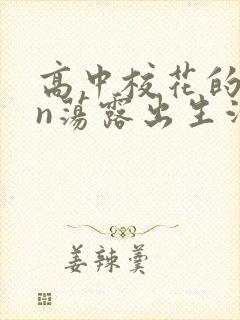 高中校花的
n荡露出生活
姜辣羹